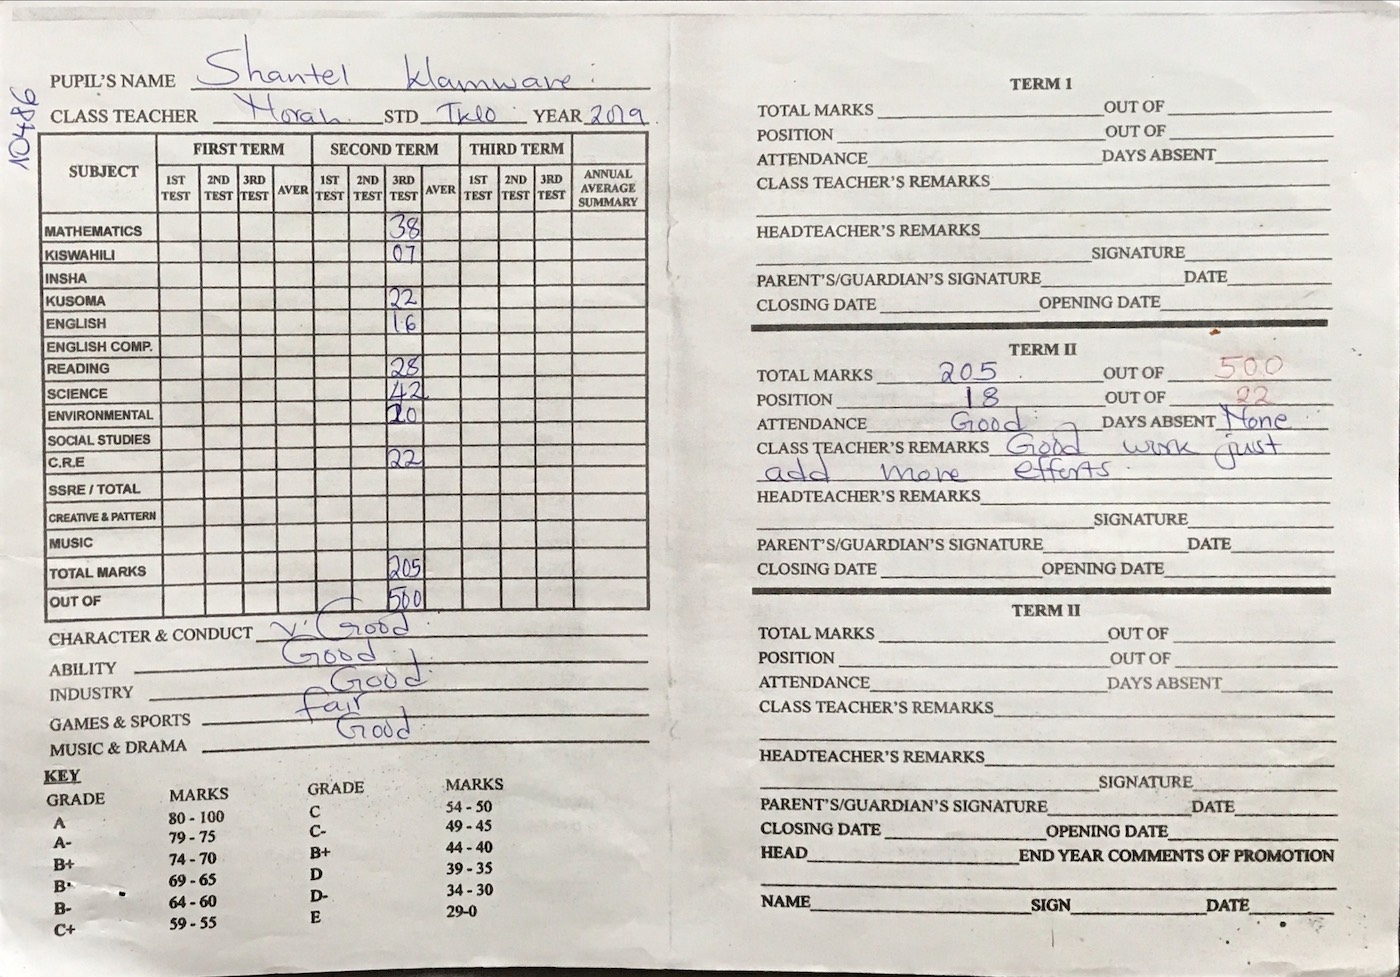 PUPIL'S NAME Shantel Klamware
CLASS TEACHER Morah STD Two YEAR 2019
10486
SUBJECT FIRST TERM SECOND TERM THIRD TERM ANNUAL AVERAGE SUMMARY
1ST TEST 2ND TEST 3RD TEST AVER 1ST TEST 2ND TEST 3RD TEST AVER 1ST TEST 2ND TEST 3RD TEST
MATHEMATICS 38
KISWAHILI 07
INSHA
KUSOMA 22
ENGLISH 16
ENGLISH COMP.
READING 28
SCIENCE 42
ENVIRONMENTAL 20
SOCIAL STUDIES
C.R.E 22
SSRE / TOTAL
CREATIVE & PATTERN
MUSIC
TOTAL MARKS 205
OUT OF 500
CHARACTER & CONDUCT V. Good
ABILITY Good
INDUSTRY Good
GAMES & SPORTS fair
MUSIC & DRAMA Good
KEY
GRADE MARKS GRADE MARKS
A 80 - 100 C 54 - 50
A- 79 - 75 C- 49 - 45
B+ 74 - 70 B+ 44 - 40
B 69 - 65 D 39 - 35
B- 64 - 60 D- 34 - 30
C+ 59 - 55 E 29-0
TERM I
TOTAL MARKS OUT OF
POSITION OUT OF
ATTENDANCE DAYS ABSENT
CLASS TEACHER'S REMARKS
HEADTEACHER'S REMARKS
SIGNATURE
PARENT'S/GUARDIAN'S SIGNATURE DATE
CLOSING DATE OPENING DATE
TERM II
TOTAL MARKS 205 OUT OF 500
POSITION 18 OUT OF 22
ATTENDANCE Good DAYS ABSENT None
CLASS TEACHER'S REMARKS Good work just
add more efforts.
HEADTEACHER'S REMARKS
SIGNATURE
PARENT'S/GUARDIAN'S SIGNATURE DATE
CLOSING DATE OPENING DATE
TERM II
TOTAL MARKS OUT OF
POSITION OUT OF
ATTENDANCE DAYS ABSENT
CLASS TEACHER'S REMARKS
HEADTEACHER'S REMARKS
SIGNATURE
PARENT'S/GUARDIAN'S SIGNATURE DATE
CLOSING DATE OPENING DATE
HEAD END YEAR COMMENTS OF PROMOTION
NAME SIGN DATE